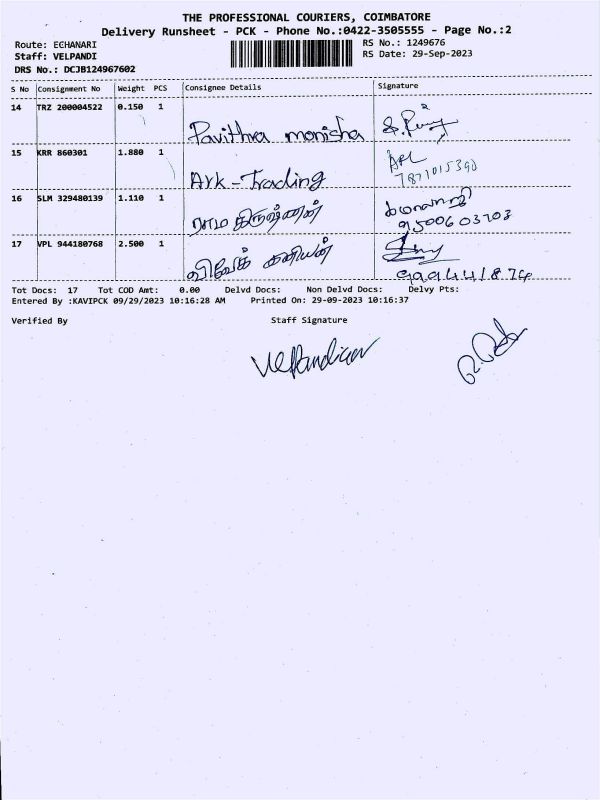 THE PROFESSIONAL COURIERS, COIMBATORE
Delivery Runsheet - PCK - Phone No.:0422-3505555 - Page No.:2
Route: ECHANARI
Staff: VELPANDI
DRS No.: DCJB124967602
RS No.: 1249676
RS Date: 29-Sep-2023
S No Consignment No Weight PCS Consignee Details Signature
14 TRZ 200004522 0.150 1 Pavithra monisha
15 KRR 860301 1.880 1 Ark - Trading
7871015390
16 SLM 329480139 1.110 1 ராம கிருஷ்ணன்
9500603703
17 VPL 944180768 2.500 1 விவேக் கனியன்
Tot Docs: 17 Tot COD Amt: 0.00 Delvd Docs: Non Delvd Docs: Delvy Pts:
Entered By :KAVIPCK 09/29/2023 10:16:28 AM Printed On: 29-09-2023 10:16:37
Verified By Staff Signature
Velpandian